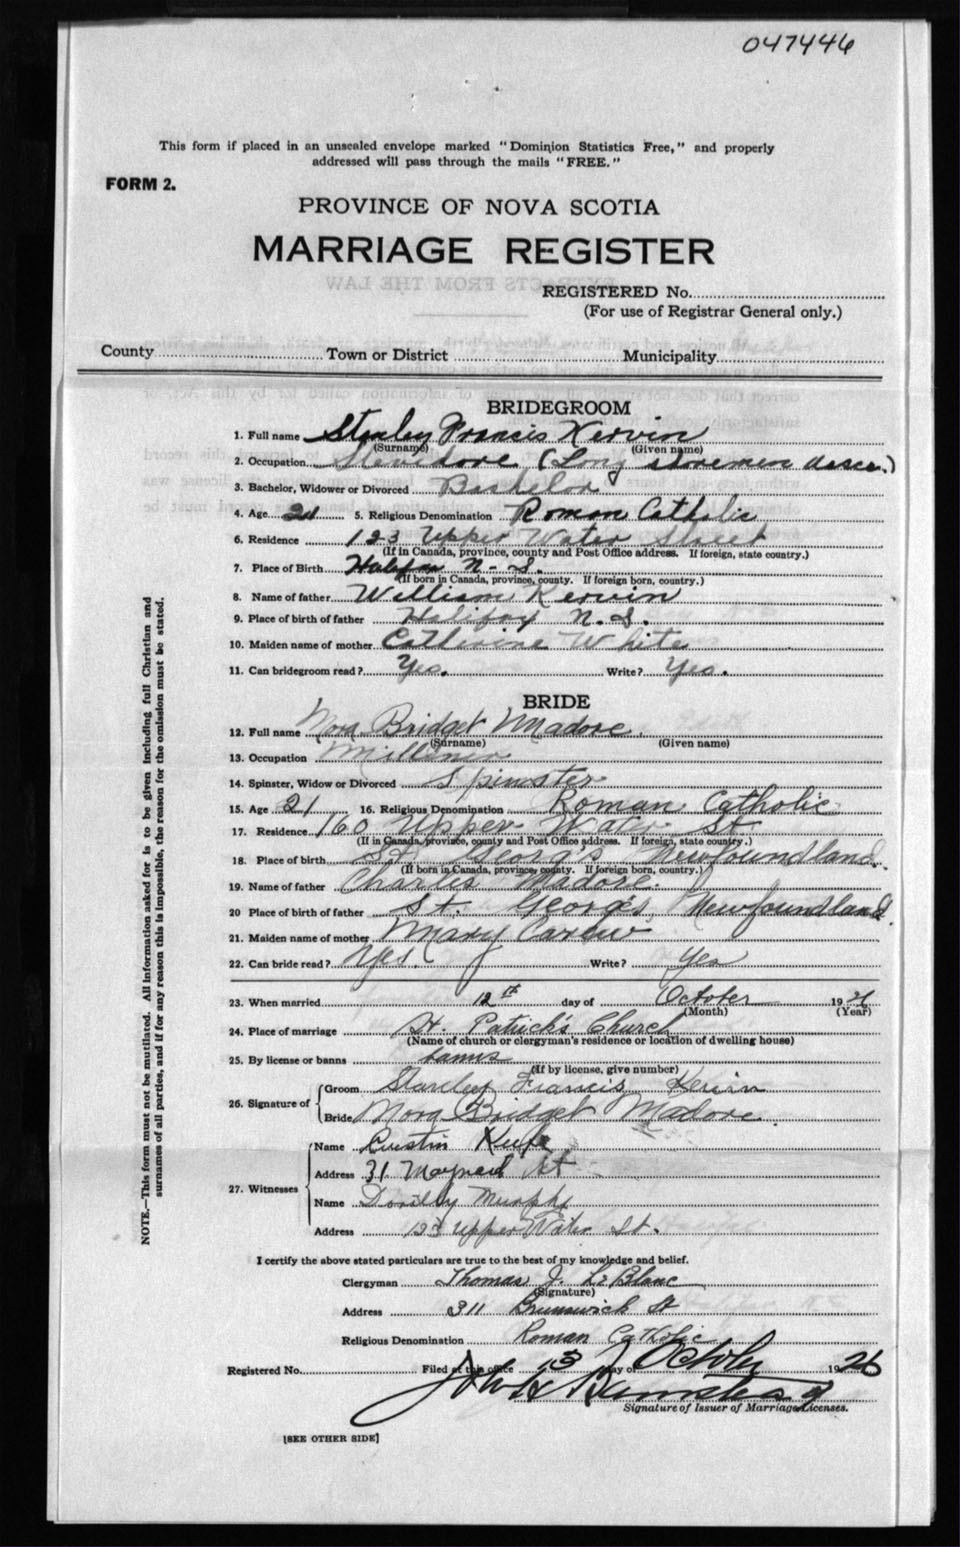 047446
This form if placed in an unsealed envelope marked "Dominion Statistics Free," and properly
addressed will pass through the mails "FREE."
FORM 2.
PROVINCE OF NOVA SCOTIA
MARRIAGE REGISTER
EXTRACTS FROM THE LAW
REGISTERED No.
(For use of Registrar General only.)
County Town or District Municipality
BRIDEGROOM
1. Full name Stanley Francis Kervin
(Surname) (Given name)
2. Occupation Stevidore (Long shoremen assoc.)
3. Bachelor, Widower or Divorced Bachelor
4. Age 21 5. Religious Denomination Roman Catholic
6. Residence 123 Upper Water Street
(If in Canada, province, county and Post Office address. If foreign, state country.)
7. Place of Birth Halifax N-S.
(If born in Canada, province, county. If foreign born, country.)
8. Name of father William Kervin
9. Place of birth of father Halifax N.S.
10. Maiden name of mother Catherine White
11. Can bridegroom read? Yes. Write? Yes.
BRIDE
12. Full name Nora Bridget Madore.
(Surname) (Given name)
13. Occupation Milliner
14. Spinster, Widow or Divorced Spinster
15. Age 21 16. Religious Denomination Roman Catholic
17. Residence 160 Upper Water St
(If in Canada, province, county and Post Office address. If foreign, state country.)
18. Place of birth St. Georg's Newfoundland.
(If born in Canada, province, county. If foreign born, country.)
19. Name of father Charles Madore.
20 Place of birth of father St. George's, Newfoundland.
21. Maiden name of mother Mary Carew
22. Can bride read? Yes. Write? Yes
23. When married 12th day of October 1926
(Month) (Year)
24. Place of marriage St. Patrick's Church
(Name of church or clergyman's residence or location of dwelling house)
25. By license or banns banns
(If by license, give number)
26. Signature of Groom Stanley Francis Kervin
Bride Nora Bridget Madore.
27. Witnesses Name Keefe
Address 31 Maynard St
Name Murphy
Address 123 Upper Water St.
I certify the above stated particulars are true to the best of my knowledge and belief.
Clergyman Thomas J. LeBlanc
(Signature)
Address 311 Brunswick St
Religious Denomination Roman Catholic
Registered No. Filed at this office 13 day of October 1926
John
Signature of Issuer of Marriage Licenses.
[SEE OTHER SIDE]
NOTE.—This form must not be mutilated. All information asked for is to be given including full Christian and
surnames of all parties, and if for any reason this is impossible, the reason for the omission must be stated.